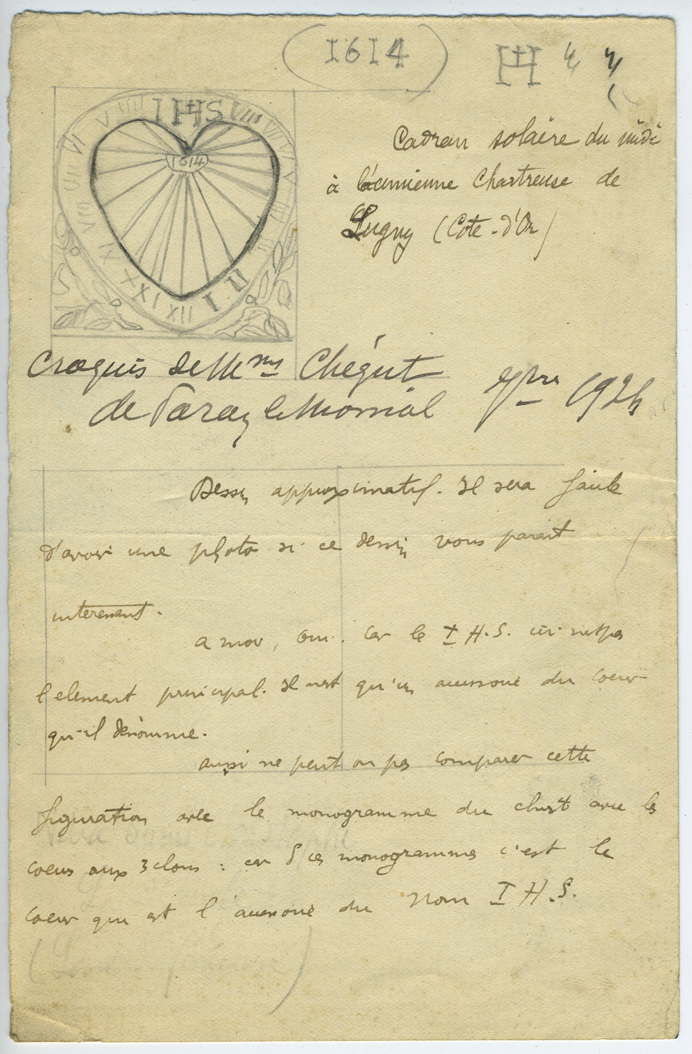 (1614)
IHS
1614
VI V IIII IHS VIII
XI X XI XII I II
Cadran solaire du midi
à l'ancienne Chartreuse de
Lugny (Côte-d'Or)
Croquis de Mme Chégut
de Paray le Monial 7bre 1924
Dessin approximatif. Il sera facile
d'avoir une photo si ce dessin vous parait
interessant.
a moi, oui. Car le I H.S. ici n'est pas
l'element principal. Il n'est qu'un accessoire du Coeur
qu'il dénomme.
aussi ne peut on pas comparer cette
figuration avec le monogramme du christ avec les
coeurs aux 3 clous : car ds ces monogrammes c'est le
Coeur qui est l'accessoire du Nom I H.S.